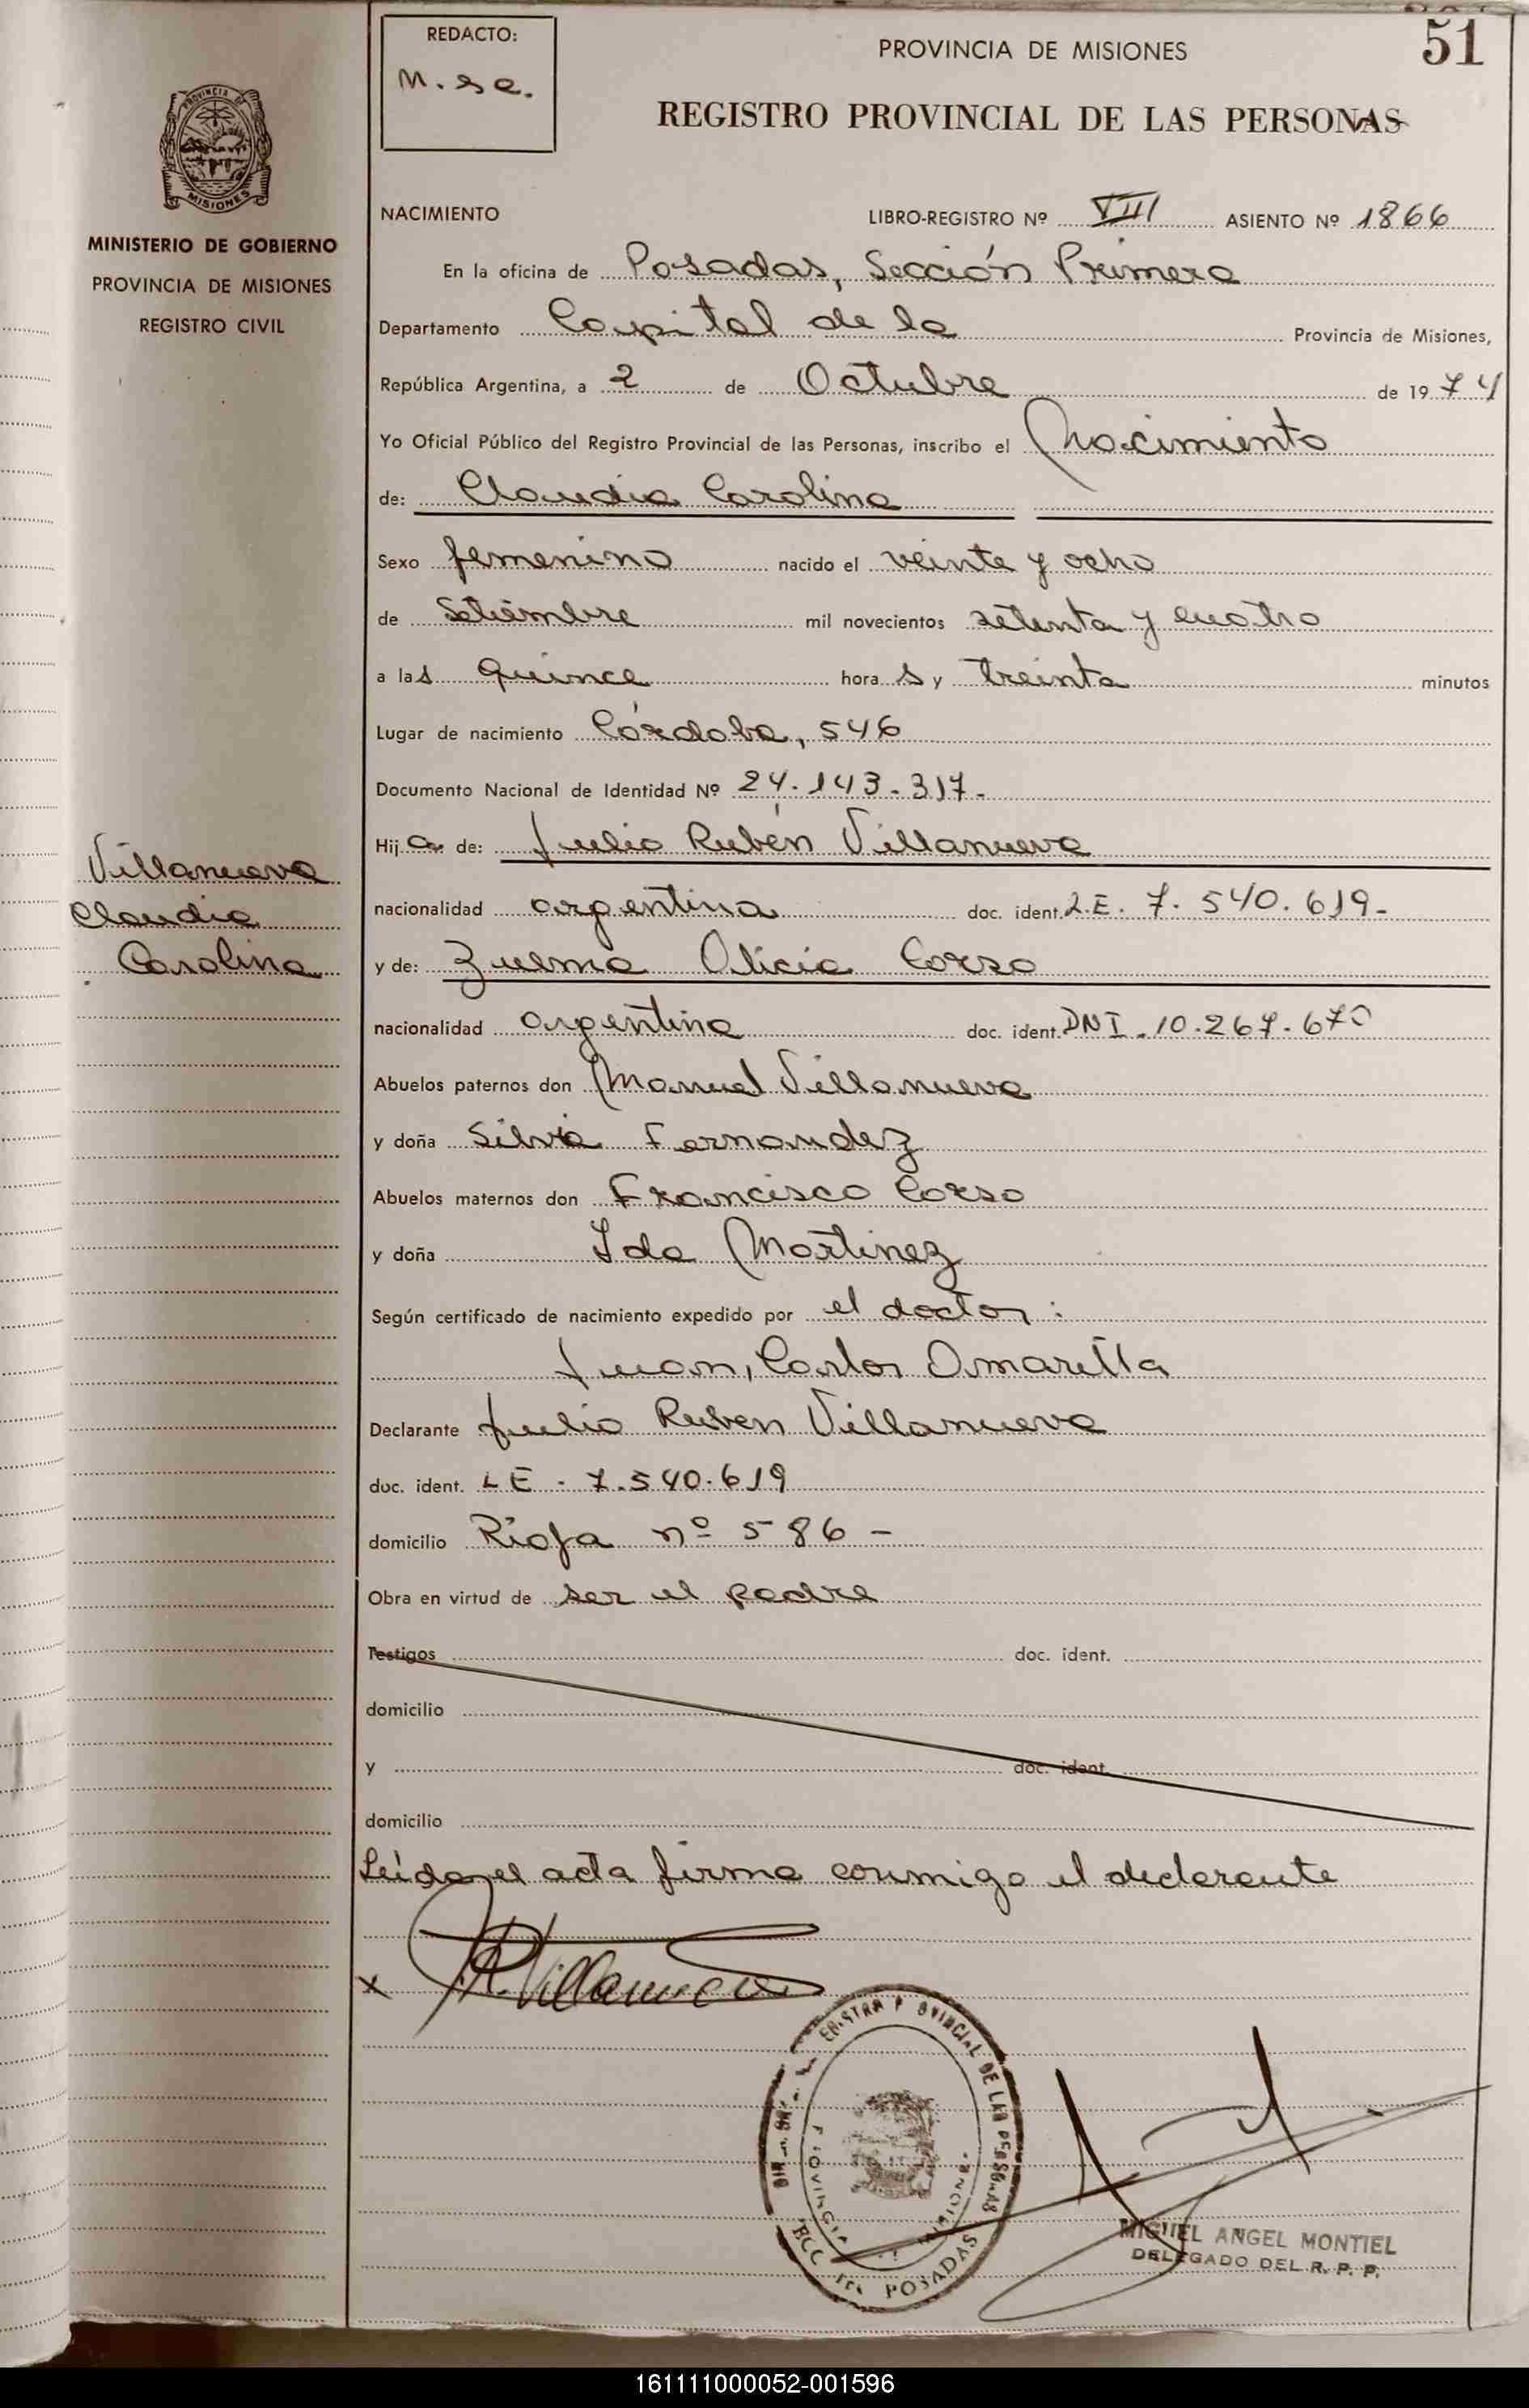 51
REDACTO:
M. se.
PROVINCIA DE MISIONES
REGISTRO PROVINCIAL DE LAS PERSONAS
PROVINCIA DE
MISIONES
MINISTERIO DE GOBIERNO
PROVINCIA DE MISIONES
REGISTRO CIVIL
NACIMIENTO LIBRO-REGISTRO Nº VIII ASIENTO Nº 1866
En la oficina de Posadas, Sección Primera
Departamento Capital de la Provincia de Misiones,
República Argentina, a 2 de Octubre de 1974
Yo Oficial Público del Registro Provincial de las Personas, inscribo el Nacimiento
de: Claudia Carolina
Sexo femenino nacido el veinte y ocho
de Setiembre mil novecientos setenta y cuatro
a las quince horas y treinta minutos
Lugar de nacimiento Córdoba, 546
Documento Nacional de Identidad Nº 24.143.317-
Hija de: Julio Rubén Villanueva
Villanueva
Claudia
Carolina
nacionalidad argentina doc. ident. L.E. 7.540.619-
y de: Zulma Alicia Corso
nacionalidad argentina doc. ident. DNI. 10.267.670
Abuelos paternos don Manuel Villanueva
y doña Silvia Fernandez
Abuelos maternos don Francisco Corso
y doña Ida Martinez
Según certificado de nacimiento expedido por el doctor:
Juan, Carlos Amarilla
Declarante Julio Ruben Villanueva
doc. ident. LE - 7.540.619
domicilio Rioja nº 586 -
Obra en virtud de ser el padre
Testigos doc. ident.
domicilio
y doc. ident.
domicilio
Leida el acta firma conmigo el declarante
x J.R. Villanueva
PROVINCIAL DE LAS PERSONAS
POSADAS
MIGUEL ANGEL MONTIEL
DELEGADO DEL R. P. P.
161111000052-001596